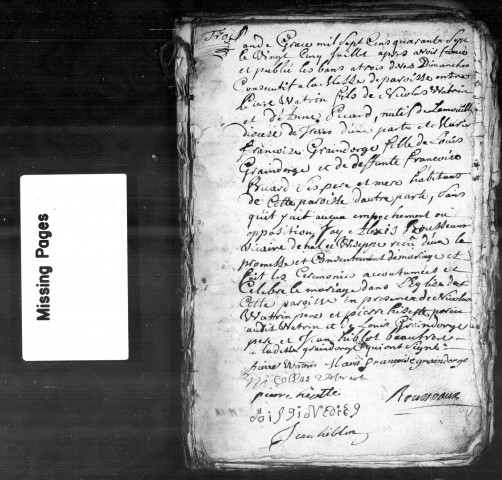 Missing Pages
L'an de Grace mil Sept Cens quarante Sept
le Vingt Cinq Juillet apres avoir fiancé
et publié les bans a trois divers Dimanches
Consecutif a la Messe de paroisse entre
Pierre Watrin fils de Nicolas Watrin
et de Anne Picard, natif de
diocese de Treves d'une parte et Marie
Françoise Graindorge fille de Louis
Graindorge et de deffunte Françoise
ses pere et mere habitans
de Cette paroisse d'autre parte, Sans
qu'il y ait aucun empechement ou
opposition, Jay Alexis Rousseaux
Vicaire de receu d'eux la
promesse et Consentement de mariage et
fait les Ceremonies accoutumées et
Celebré le mariage dans l'Eglise de
Cette paroisse en presence de Nicolas
Wattrin pere et pierre
audit Watrin et de Louis Graindorge
pere et Jean hiblot beaufrere
a ladite graindorge qui ont signé
pierre Watrin Marie françoise graindorge
Nicollas
pierre
Rousseaux
Jean hiblot